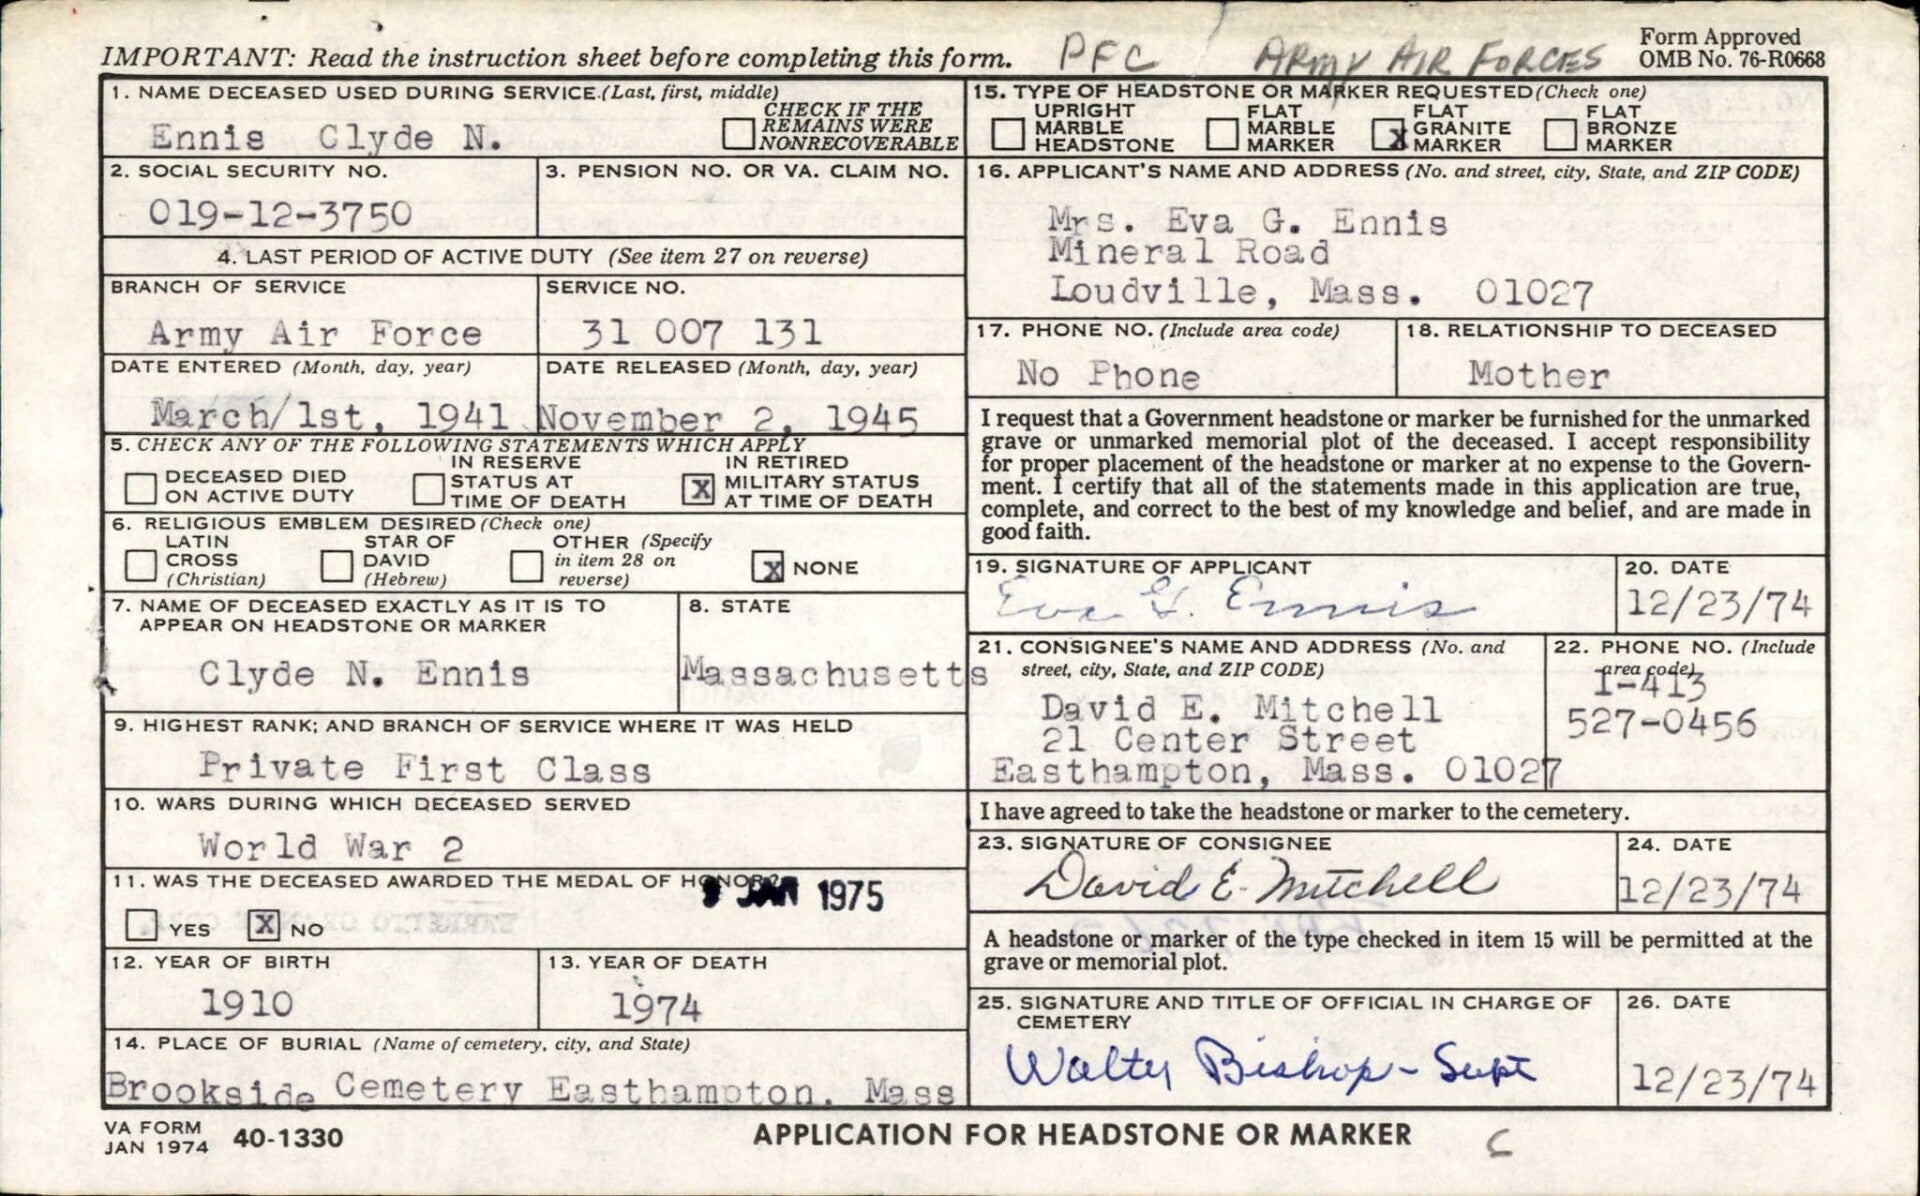 IMPORTANT: Read the instruction sheet before completing this form.
PFC ARMY AIR FORCES
Form Approved
OMB No. 76-R0668
1. NAME DECEASED USED DURING SERVICE (Last, first, middle)
Ennis Clyde N.
CHECK IF THE
REMAINS WERE
NONRECOVERABLE
2. SOCIAL SECURITY NO.
019-12-3750
3. PENSION NO. OR VA. CLAIM NO.
4. LAST PERIOD OF ACTIVE DUTY (See item 27 on reverse)
BRANCH OF SERVICE
Army Air Force
SERVICE NO.
31 007 131
DATE ENTERED (Month, day, year)
March/1st, 1941
DATE RELEASED (Month, day, year)
November 2, 1945
5. CHECK ANY OF THE FOLLOWING STATEMENTS WHICH APPLY
DECEASED DIED
ON ACTIVE DUTY
IN RESERVE
STATUS AT
TIME OF DEATH
X
IN RETIRED
MILITARY STATUS
AT TIME OF DEATH
6. RELIGIOUS EMBLEM DESIRED (Check one)
LATIN
CROSS
(Christian)
STAR OF
DAVID
(Hebrew)
OTHER (Specify
in item 28 on
reverse)
X NONE
7. NAME OF DECEASED EXACTLY AS IT IS TO
APPEAR ON HEADSTONE OR MARKER
Clyde N. Ennis
8. STATE
Massachusetts
9. HIGHEST RANK; AND BRANCH OF SERVICE WHERE IT WAS HELD
Private First Class
10. WARS DURING WHICH DECEASED SERVED
World War 2
11. WAS THE DECEASED AWARDED THE MEDAL OF HONOR?
JAN 1975
YES X NO
12. YEAR OF BIRTH
1910
13. YEAR OF DEATH
1974
14. PLACE OF BURIAL (Name of cemetery, city, and State)
Brookside Cemetery Easthampton, Mass
15. TYPE OF HEADSTONE OR MARKER REQUESTED (Check one)
UPRIGHT
MARBLE
HEADSTONE
FLAT
MARBLE
MARKER
X
FLAT
GRANITE
MARKER
FLAT
BRONZE
MARKER
16. APPLICANT'S NAME AND ADDRESS (No. and street, city, State, and ZIP CODE)
Mrs. Eva G. Ennis
Mineral Road
Loudville, Mass. 01027
17. PHONE NO. (Include area code)
No Phone
18. RELATIONSHIP TO DECEASED
Mother
I request that a Government headstone or marker be furnished for the unmarked
grave or unmarked memorial plot of the deceased. I accept responsibility
for proper placement of the headstone or marker at no expense to the Govern-
ment. I certify that all of the statements made in this application are true,
complete, and correct to the best of my knowledge and belief, and are made in
good faith.
19. SIGNATURE OF APPLICANT
Eva G. Ennis
20. DATE
12/23/74
21. CONSIGNEE'S NAME AND ADDRESS (No. and
street, city, State, and ZIP CODE)
David E. Mitchell
21 Center Street
Easthampton, Mass. 01027
22. PHONE NO. (Include
area code)
1-413
527-0456
I have agreed to take the headstone or marker to the cemetery.
23. SIGNATURE OF CONSIGNEE
David E. Mitchell
24. DATE
12/23/74
A headstone or marker of the type checked in item 15 will be permitted at the
grave or memorial plot.
25. SIGNATURE AND TITLE OF OFFICIAL IN CHARGE OF
CEMETERY
Walter Bishop - Supt
26. DATE
12/23/74
VA FORM
JAN 1974 40-1330
APPLICATION FOR HEADSTONE OR MARKER
C